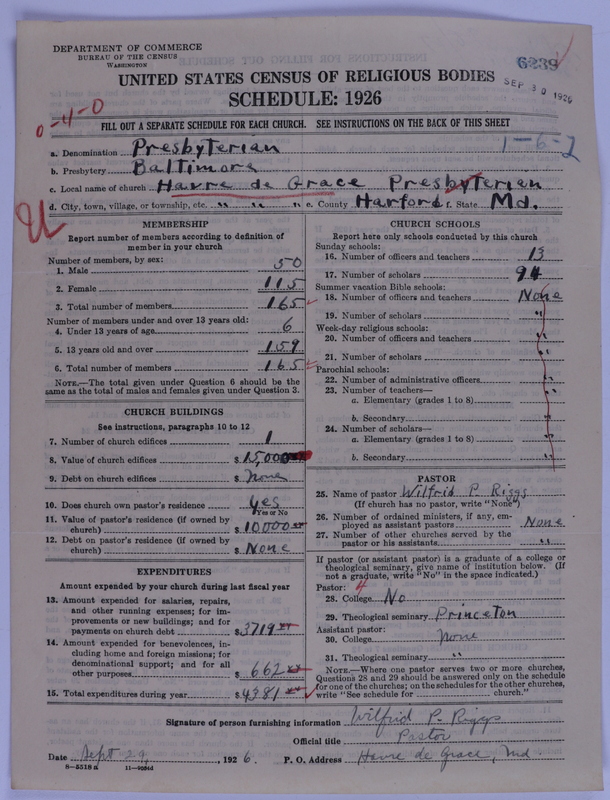 DEPARTMENT OF COMMERCE
BUREAU OF THE CENSUS
WASHINGTON
6239
SEP 30 1926
UNITED STATES CENSUS OF RELIGIOUS BODIES
SCHEDULE: 1926
0-4-0
FILL OUT A SEPARATE SCHEDULE FOR EACH CHURCH. SEE INSTRUCTIONS ON THE BACK OF THIS SHEET
1-6-2
a. Denomination Presbyterian
b. Presbytery Baltimore
c. Local name of church Havre de Grace Presbyterian
d. City, town, village, or township, etc. " " " e. County Harford f. State Md.
U
MEMBERSHIP
Report number of members according to definition of
member in your church
Number of members, by sex:
1. Male 50
2. Female 115
3. Total number of members 165
Number of members under and over 13 years old:
4. Under 13 years of age 6
5. 13 years old and over 159
6. Total number of members 165
NOTE.—The total given under Question 6 should be the
same as the total of males and females given under Question 3.
CHURCH BUILDINGS
See instructions, paragraphs 10 to 12
7. Number of church edifices 1
8. Value of church edifices $15,000
9. Debt on church edifices $ None
10. Does church own pastor's residence yes
Yes or No
11. Value of pastor's residence (if owned by
church) $10000
12. Debt on pastor's residence (if owned by
church) $ None
EXPENDITURES
Amount expended by your church during last fiscal year
13. Amount expended for salaries, repairs,
and other running expenses; for im-
provements or new buildings; and for
payments on church debt $3719
14. Amount expended for benevolences, in-
cluding home and foreign missions; for
denominational support; and for all
other purposes $ 662
15. Total expenditures during year $4381
CHURCH SCHOOLS
Report here only schools conducted by this church
Sunday schools:
16. Number of officers and teachers 13
17. Number of scholars 94
Summer vacation Bible schools:
18. Number of officers and teachers None
19. Number of scholars "
Week-day religious schools:
20. Number of officers and teachers "
21. Number of scholars "
Parochial schools:
22. Number of administrative officers "
23. Number of teachers—
a. Elementary (grades 1 to 8) "
b. Secondary "
24. Number of scholars—
a. Elementary (grades 1 to 8) "
b. Secondary "
PASTOR
25. Name of pastor Wilfrid P. Riggs
(If church has no pastor, write "None")
26. Number of ordained ministers, if any, em-
ployed as assistant pastors None
27. Number of other churches served by the
pastor or his assistants "
If pastor (or assistant pastor) is a graduate of a college or
theological seminary, give name of institution below. (If
not a graduate, write "No" in the space indicated.)
Pastor: 4
28. College No
29. Theological seminary Princeton
Assistant pastor:
30. College none
31. Theological seminary "
NOTE.—Where one pastor serves two or more churches,
Questions 28 and 29 should be answered only on the schedule
for one of the churches; on the schedules for the other churches,
write "See schedule for church."
Signature of person furnishing information Wilfrid P. Riggs
Official title Pastor
Date Sept 29, 1926. P. O. Address Havre de Grace, Md
8-5518 a